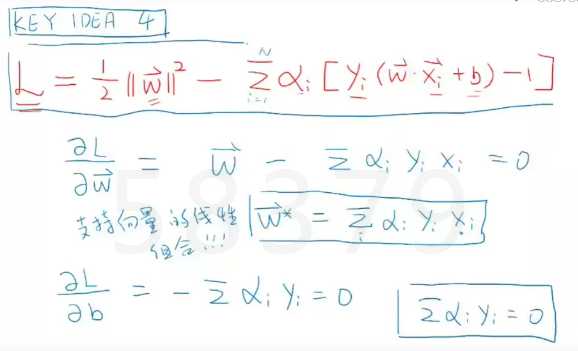 KEY IDEA 4
L = ½ ||w⃗||² − Σᵢ₌₁ᴺ αᵢ [yᵢ (w⃗·x⃗ᵢ + b) − 1]
∂L/∂w⃗ = w⃗ − Σ αᵢ yᵢ xᵢ = 0
支持向量的线性组合!!! w⃗* = Σᵢ αᵢ yᵢ xᵢ
∂L/∂b = − Σ αᵢ yᵢ = 0
Σ αᵢ yᵢ = 0
58379